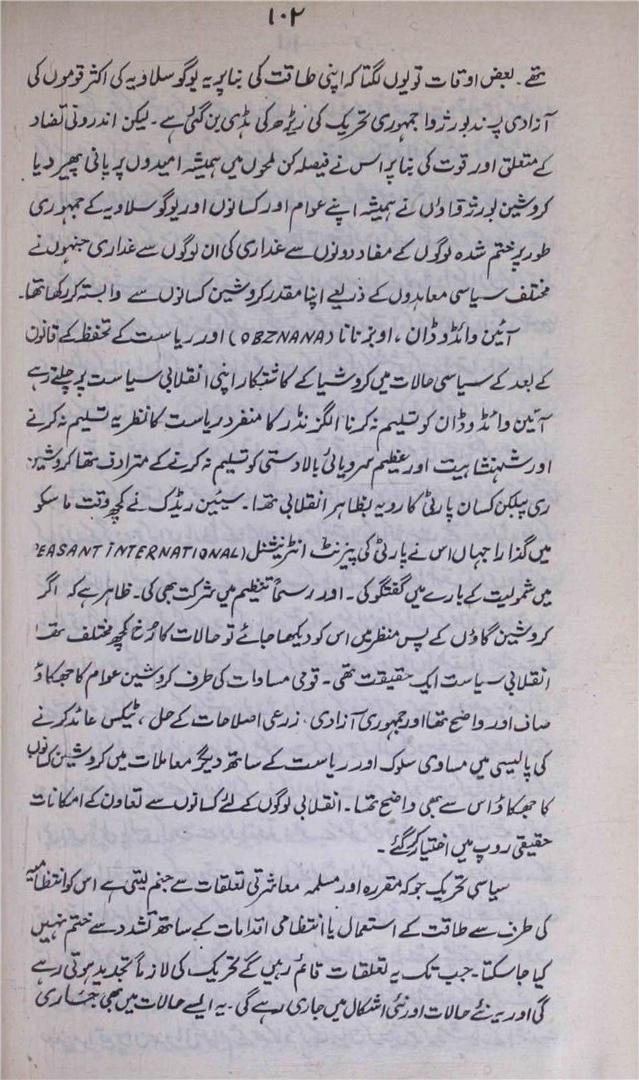 ۱۰۲
تھے۔ بعض اوقات تو یوں لگتا کہ اپنی طاقت کی بنا پر یہ یوگوسلاویہ کی اکثر قوموں کی
آزادی پسند بورژوا جمہوری تحریک کی ریڑھ کی ہڈی بن گئی ہے۔ لیکن اندرونی تضاد
کے متعلق اور قوت کی بنا پر اس نے فیصلہ کن لمحوں میں ہمیشہ امیدوں پر پانی پھیر دیا
کروشین بورژوادں نے ہمیشہ اپنے عوام اور کسانوں اور یوگوسلاویہ کے جمہوری
طور پر ختم شدہ لوگوں کے مفاد دونوں سے غداری کی ان لوگوں سے غداری جنہوں نے
مختلف سیاسی معاہدوں کے ذریعے اپنا مقدر کروشین کسانوں سے وابستہ کر رکھا تھا۔
آئین وائڈوڈان، اوبزنانا (OBZNANA) اور ریاست کے تحفظ کے قانون
کے بعد کے سیاسی حالات میں کروشیا کے کاشتکار اپنی انقلابی سیاست پر چلتے رہے
آئین وائڈوڈان کو تسلیم نہ کرنا الگزنڈر کا منفرد ریاست کا نظریہ تسلیم نہ کرنے
اور شہنشاہیت اور عظیم سربیائی بالادستی کو تسلیم نہ کرنے کے مترادف تھا کروشین
ری پبلکن کسان پارٹی کا رویہ بظاہر انقلابی تھا۔ سیٹین ریڈک نے کچھ وقت ماسکو
میں گذارا جہاں اس نے پارٹی کی پیزنٹ انٹرنیشنل (EASANT INTERNATIONAL)
میں شمولیت کے بارے میں گفتگو کی۔ اور رسماً تنظیم میں شرکت بھی کی۔ ظاہر ہے کہ اگر
کروشین گاؤں کے پس منظر میں اس کو دیکھا جائے تو حالات کا رخ کچھ مختلف تھا
انقلابی سیاست ایک حقیقت تھی۔ قومی مساوات کی طرف کروشین عوام کا جھکاؤ
صاف اور واضح تھا اور جمہوری آزادی، زرعی اصلاحات کے حل، ٹیکس عائد کرنے
کی پالیسی میں مساوی سلوک اور ریاست کے ساتھ دیگر معاملات میں کروشین کسانوں
کا جھکاؤ اس سے بھی واضح تھا۔ انقلابی لوگوں کے لئے کسانوں سے تعاون کے امکانات
حقیقی روپ میں اختیار کر گئے۔
سیاسی تحریک جو کہ مقررہ اور مسلمہ معاشرتی تعلقات سے جنم لیتی ہے اس کو انتظامیہ
کی طرف سے طاقت کے استعمال یا انتظامی اقدامات کے ساتھ تشدد سے ختم نہیں
کیا جا سکتا۔ جب تک یہ تعلقات قائم رہیں گے تحریک کی لازماً تجدید ہوتی رہے
گی اور یہ نئے حالات اور نئی اشکال میں جاری رہے گی۔ یہ ایسے حالات میں بھی جاری